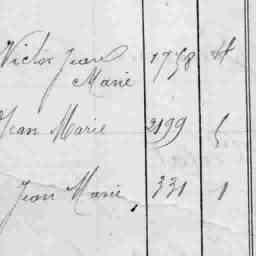 Victor Jean 1758
Marie
Jean Marie 2199
Jean Marie, 331 1